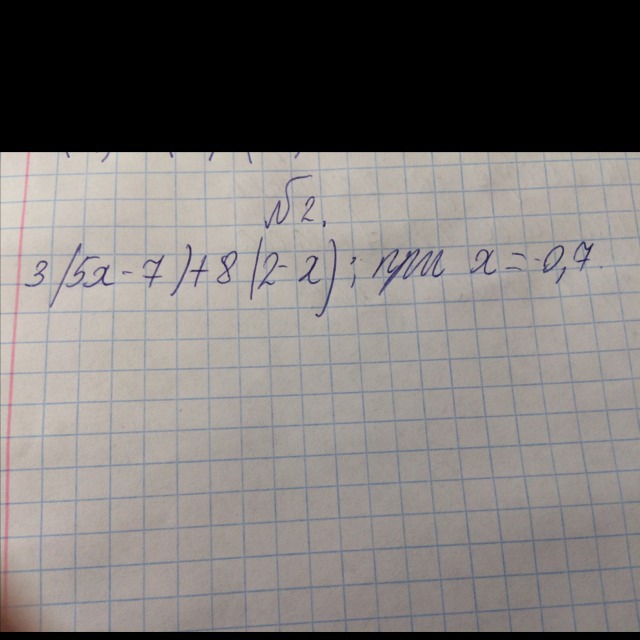 №2.
3(5x-7)+8(2-x); при x=-0,7.